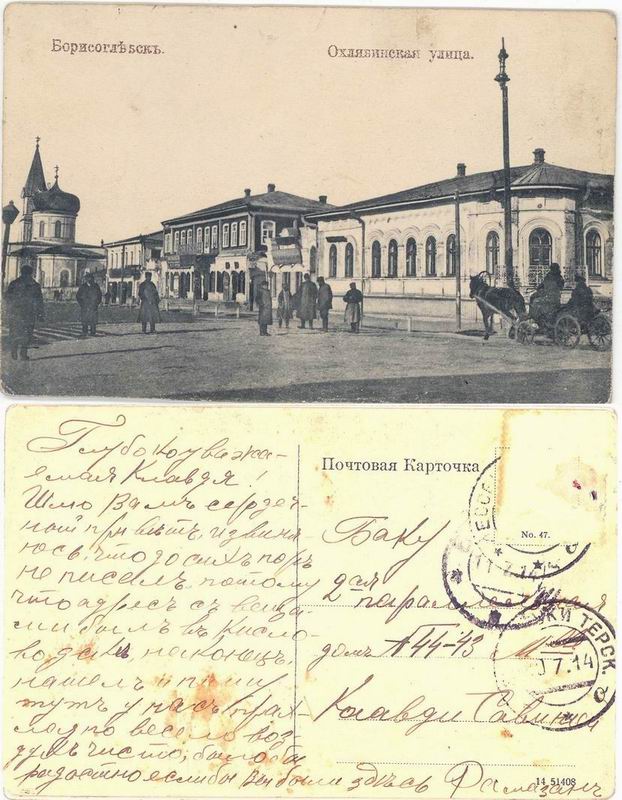 Борисоглѣбскъ.
Охлябинская улица.
Глубокоуважа-
емая Клавдя!
Шлю Вамъ сердеч-
ной привѣтъ, извиня-
юсь, что до сихъ поръ
не писелъ, потому
что адресъ съ веща-
ми былъ в Кисло-
водскѣ наконецъ,
нашелъ и пишу
тутъ у насъ прах-
ладно весело воз
духъ чисто, было бы
радостно если бы Вы были здѣсь Рамазанъ
Почтовая Карточка
No. 47.
Баку
2-ая паралельная
домъ № 44-43
Клавди Савиной
1.7.14
ТЕРСК.
7.14
14 51408